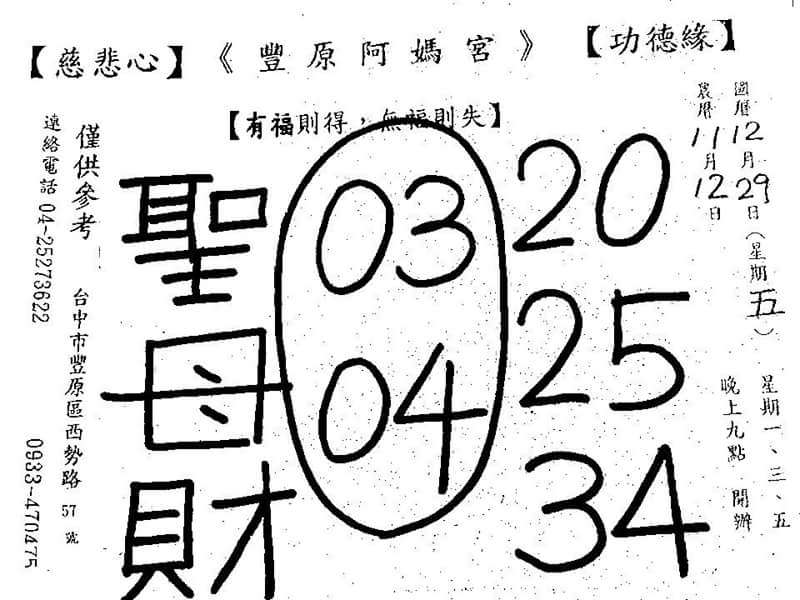 【慈悲心】《豐原阿媽宮》【功德緣】
【有福則得，無福則失】
國曆 12月29日（星期五）
農曆 11月12日
星期一、三、五
晚上九點 開辦
20
25
34
03
04
聖母財
僅供參考 台中市豐原區西勢路57號
連絡電話 04-25273622 0933-470475